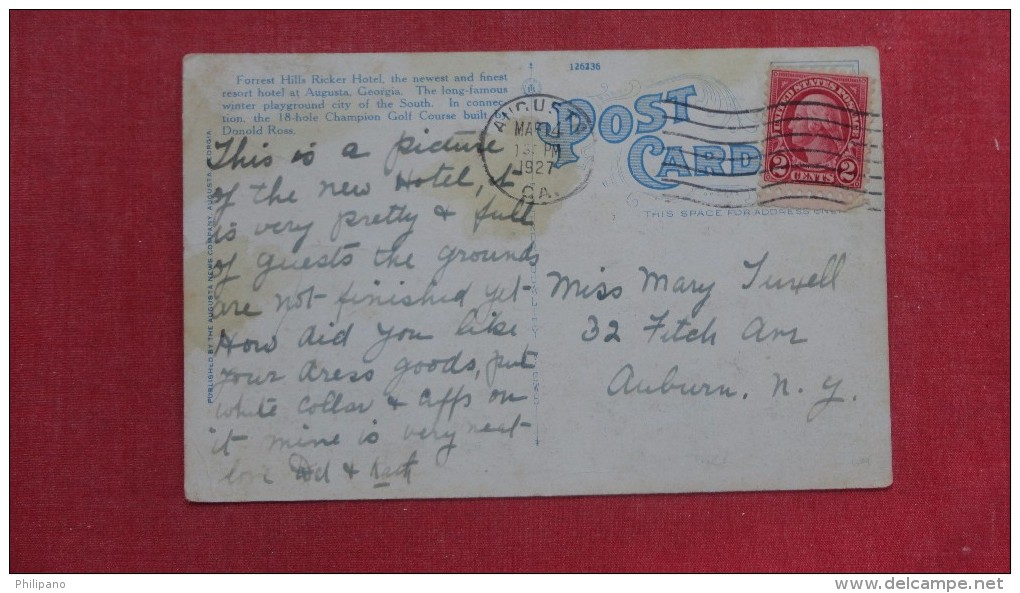 Forrest Hills Ricker Hotel, the newest and finest
resort hotel at Augusta, Georgia. The long-famous
winter playground city of the South. In connec-
tion, the 18-hole Champion Golf Course built
Donold Ross.
126236
POST
CARD
THIS SPACE FOR ADDRESS ONLY
AUGUSTA
MAR 14
PM
1927
GA.
UNITED STATES POSTAGE
2 CENTS 2
PUBLISHED BY THE AUGUSTA NEWS COMPANY, AUGUSTA, GEORGIA
This is a picture
of the new Hotel, &
is very pretty & full
of guests the grounds
are not finished yet-
How did you like
your dress goods, put
white collar & cuffs on
it mine is very neat-
love &
Miss Mary
32 Fitch Ave
Auburn, N. Y.
Philipano
www.delcampe.net